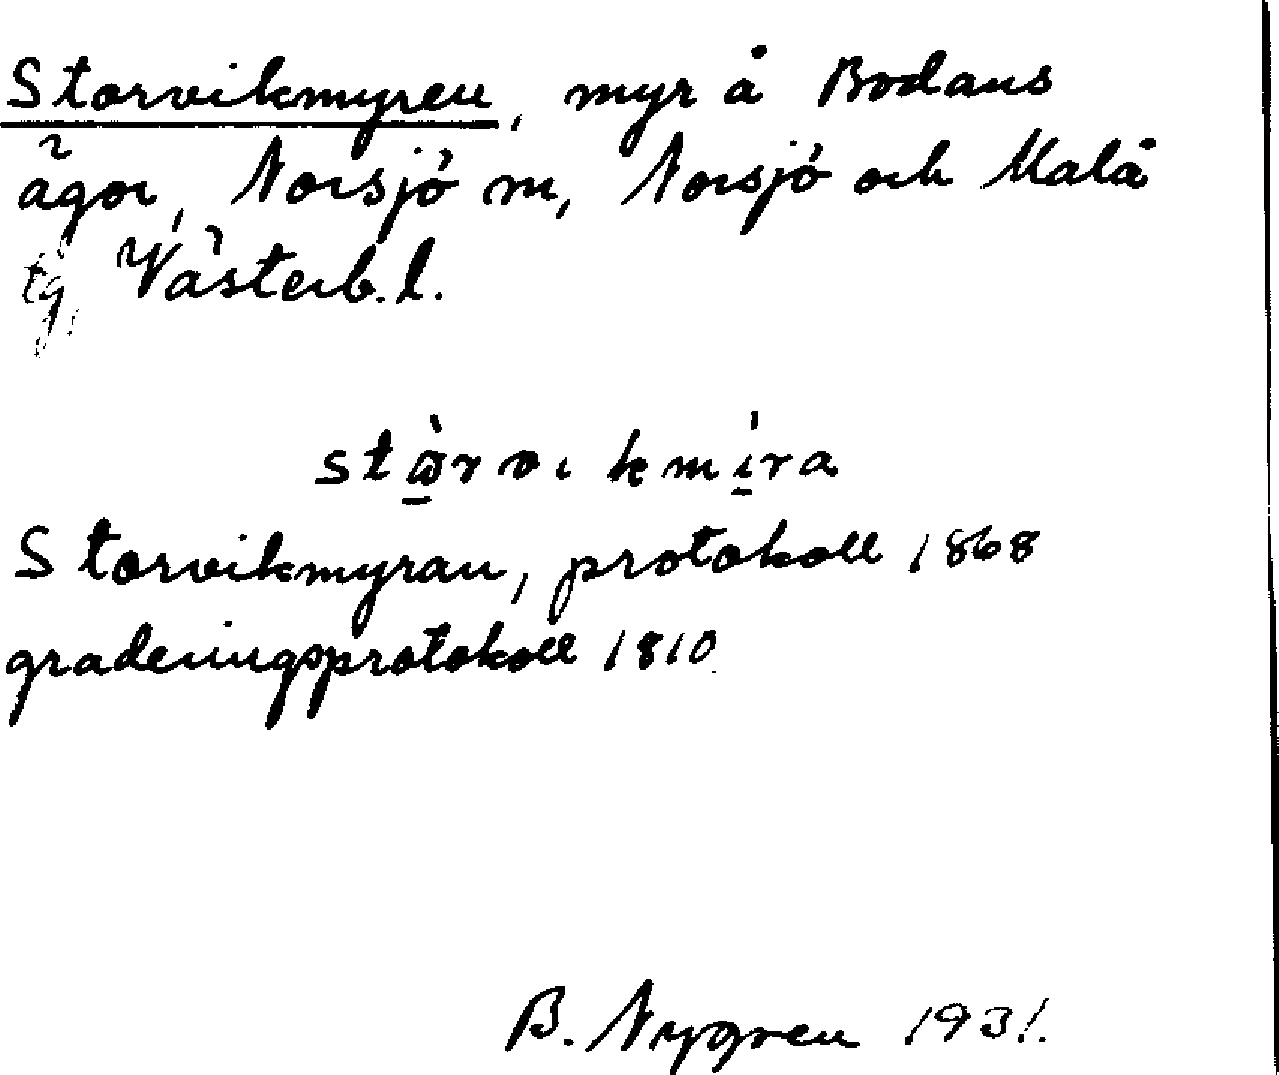 Storvikmyren, myr å Bodans
ägor, Norsjö sn, Norsjö och Malå
tg, Västerb.l.
Storvikmyran, protokoll 1868
graderingsprotokoll 1810
B. Nygren 1931.